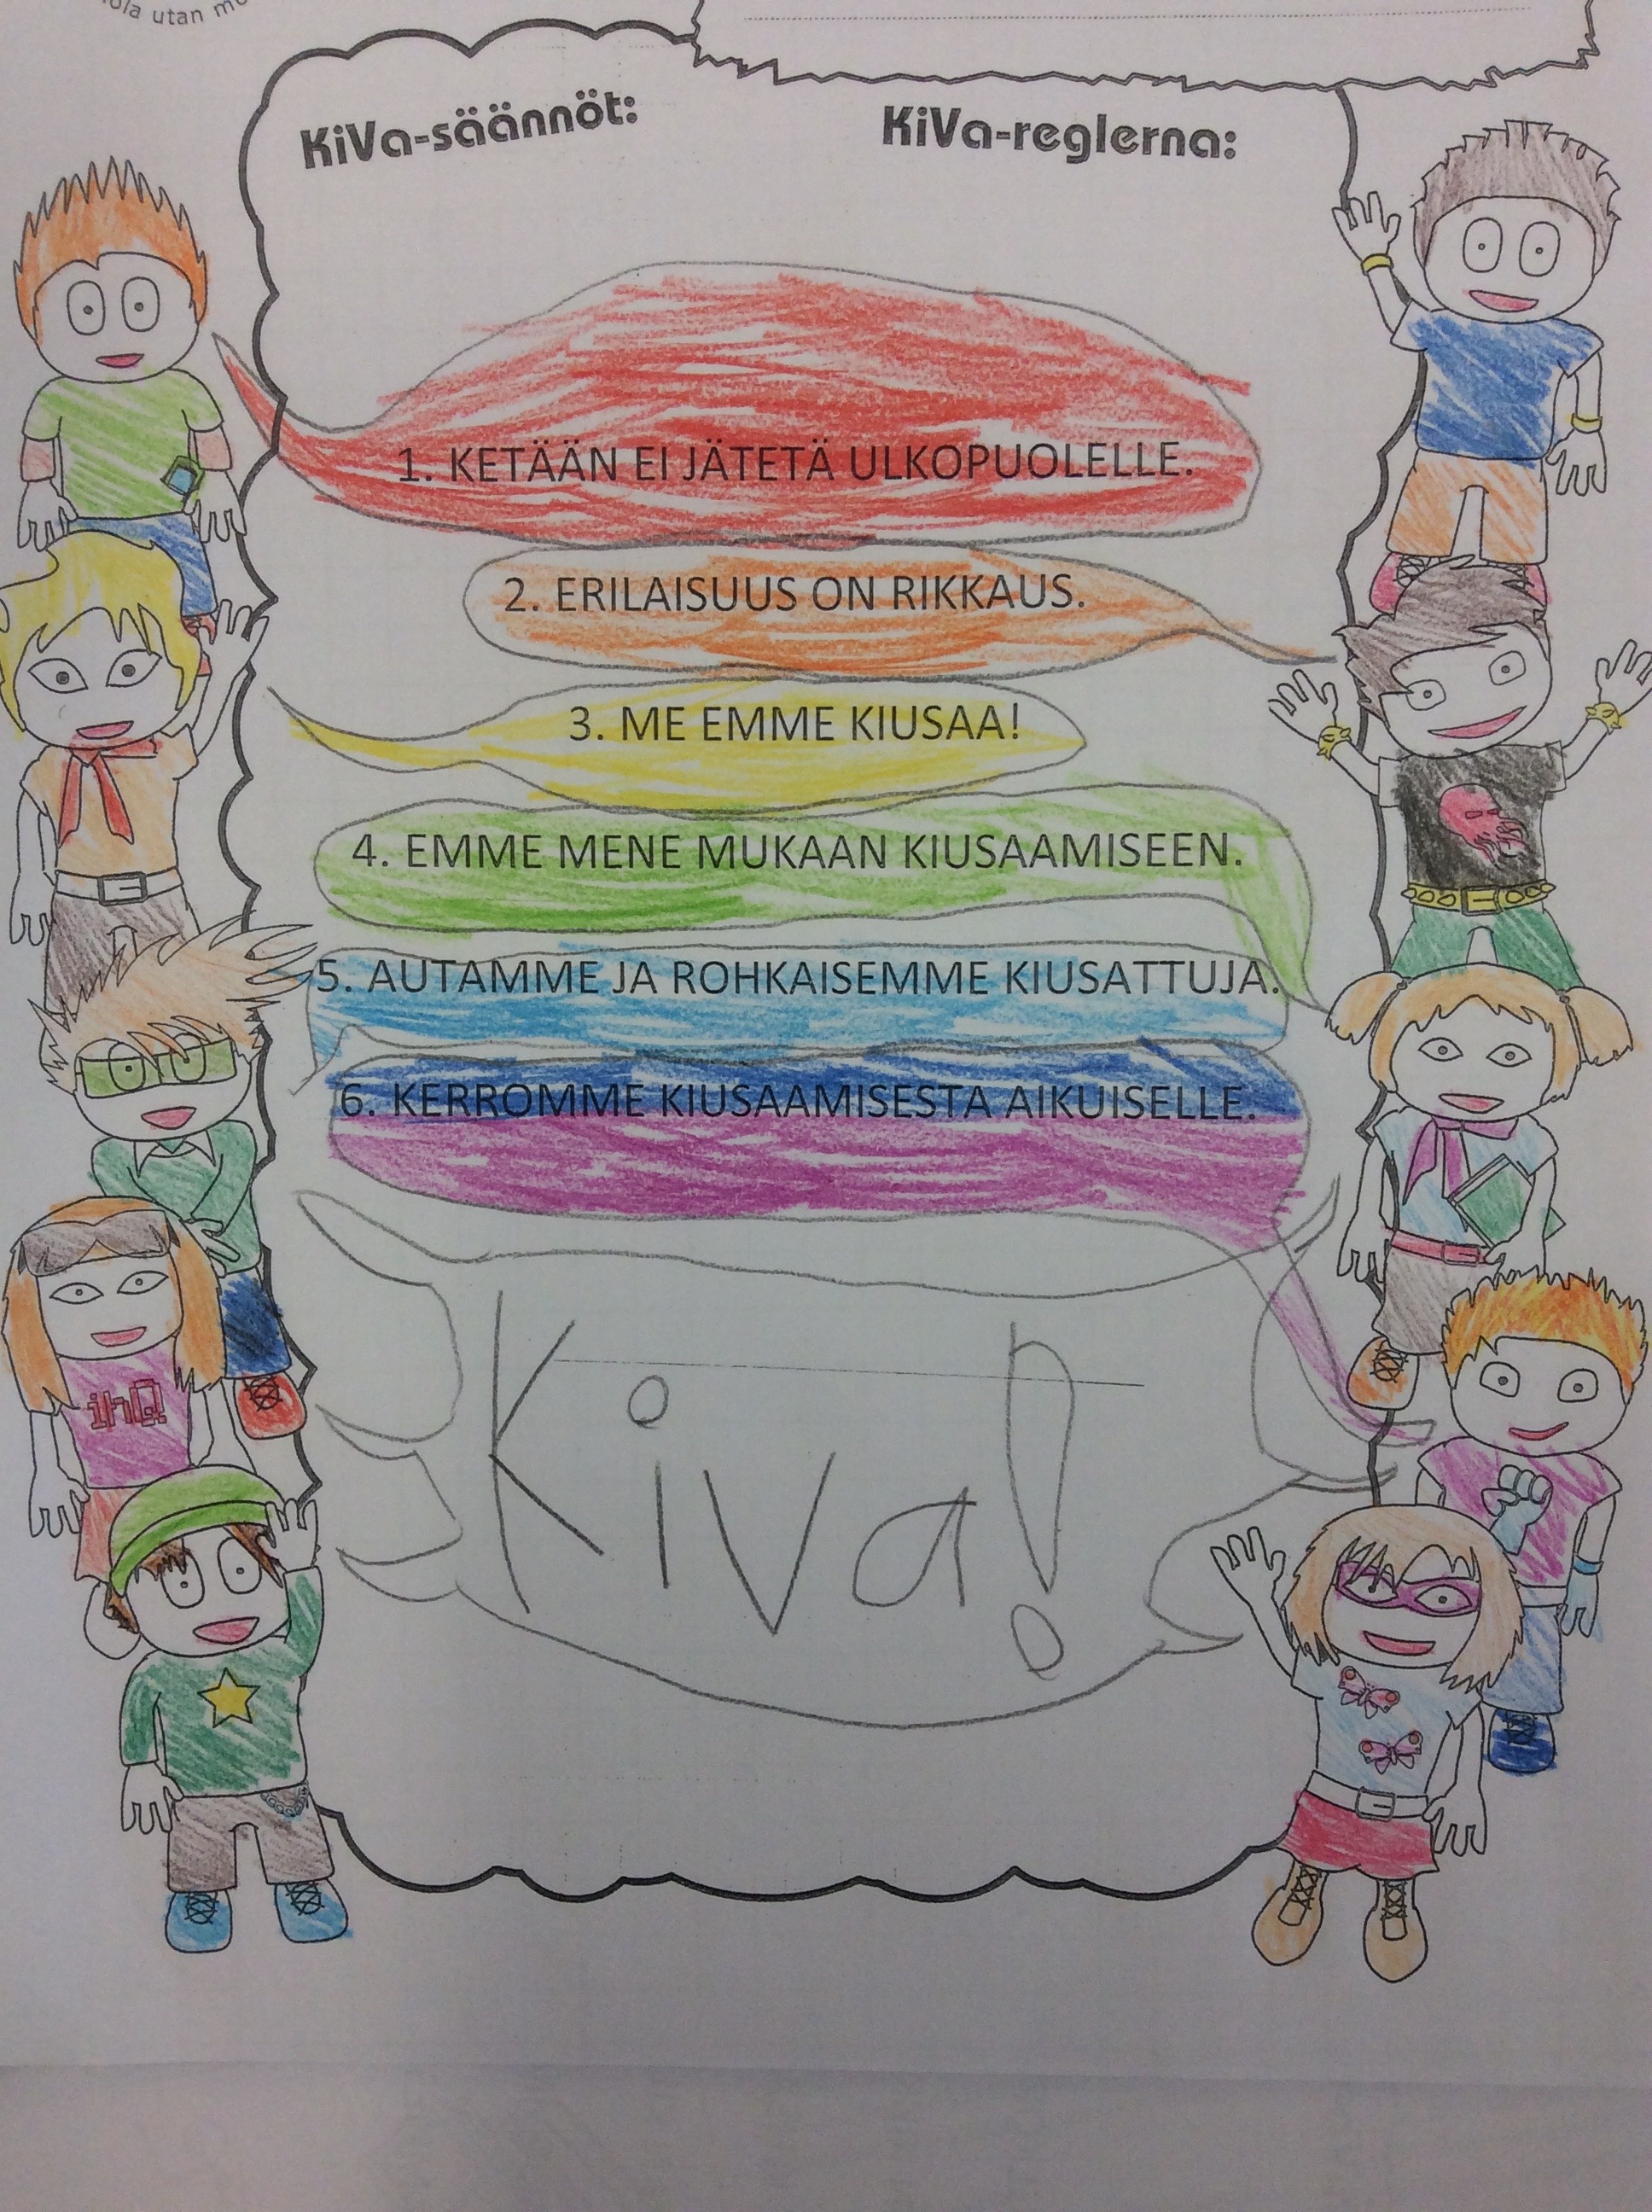 utan
KiVa-säännöt:
KiVa-reglerna:
1. KETÄÄN EI JÄTETÄ ULKOPUOLELLE.
2. ERILAISUUS ON RIKKAUS.
3. ME EMME KIUSAA!
4. EMME MENE MUKAAN KIUSAAMISEEN.
5. AUTAMME JA ROHKAISEMME KIUSATTUJA.
6. KERROMME KIUSAAMISESTA AIKUISELLE.
KiVa!